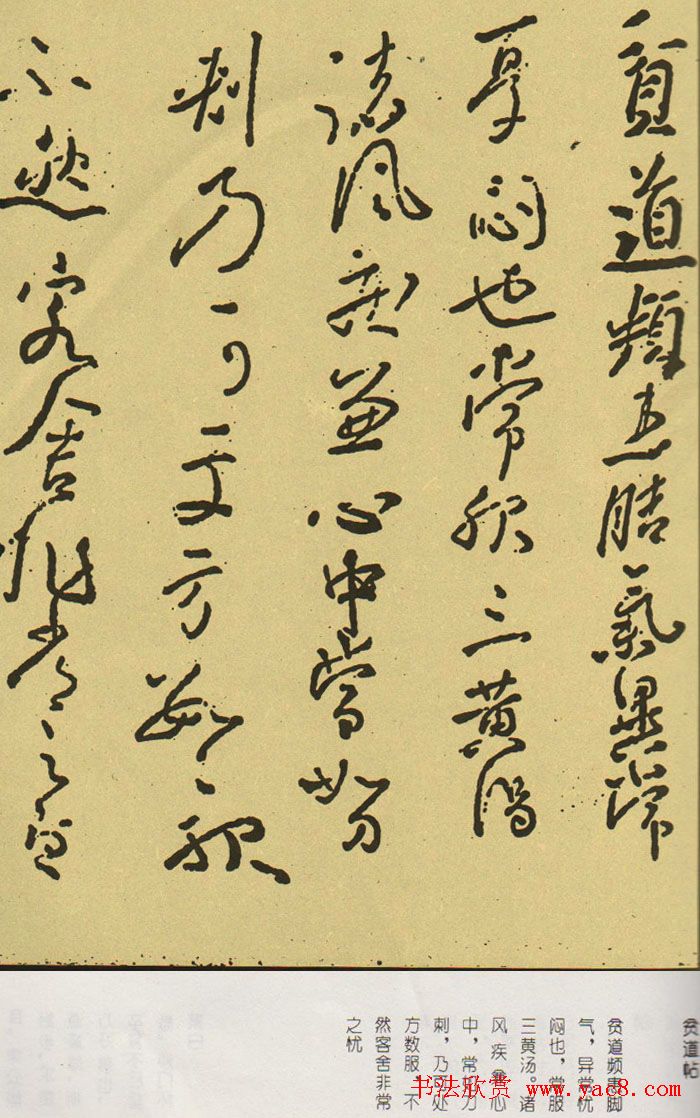 貧道頻患脚氣異常
憂悶也常服三黃湯
諸風疾兼心中常如刀
刺乃可處方數服
不然客舍非常之憂
贫道帖
贫道频患脚
气，异常忧
闷也，常服
三黄汤。诸
风疾兼心
中，常如刀
刺，乃可处
方数服，不
然客舍非常
之忧
书法欣赏 www.yac8.com